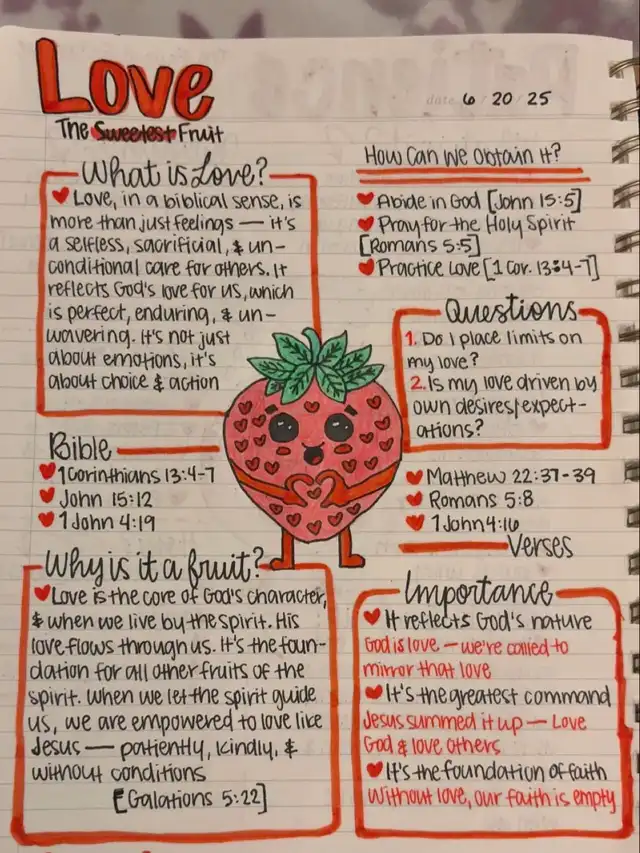 Love
The Sweetest Fruit
date 6 / 20 / 25
What is Love?
Love, in a biblical sense, is
more than just feelings — it's
a selfless, sacrificial, & un-
conditional care for others. It
reflects God's love for us, which
is perfect, enduring, & un-
wavering. It's not just
about emotions, it's
about choice & action
How Can We Obtain It?
Abide in God [John 15:5]
Pray for the Holy Spirit
[Romans 5:5]
Practice Love [1 Cor. 13:4-7]
Questions
1. Do I place limits on
my love?
2. Is my love driven by
own desires/expect-
ations?
Bible
1 Corinthians 13:4-7
John 15:12
1 John 4:19
Matthew 22:37-39
Romans 5:8
1 John 4:16
Verses
Why is it a fruit?
Love is the core of God's character,
& when we live by the spirit. His
love flows through us. It's the foun-
dation for all other fruits of the
spirit. When we let the spirit guide
us, we are empowered to love like
Jesus — patiently, kindly, &
without conditions
[Galations 5:22]
Importance
It reflects God's nature
God is love — we're called to
mirror that love
It's the greatest command
Jesus summed it up — Love
God & love others
It's the foundation of faith
Without love, our faith is empty